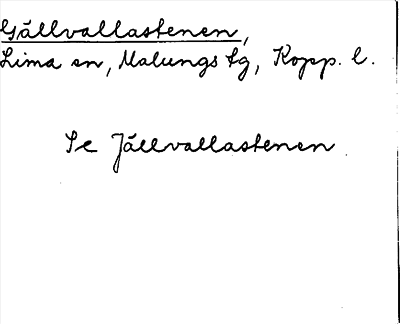 Gällvallastenen,
Lima sn, Malungs tg, Kopp. l.
Se Jällvallastenen